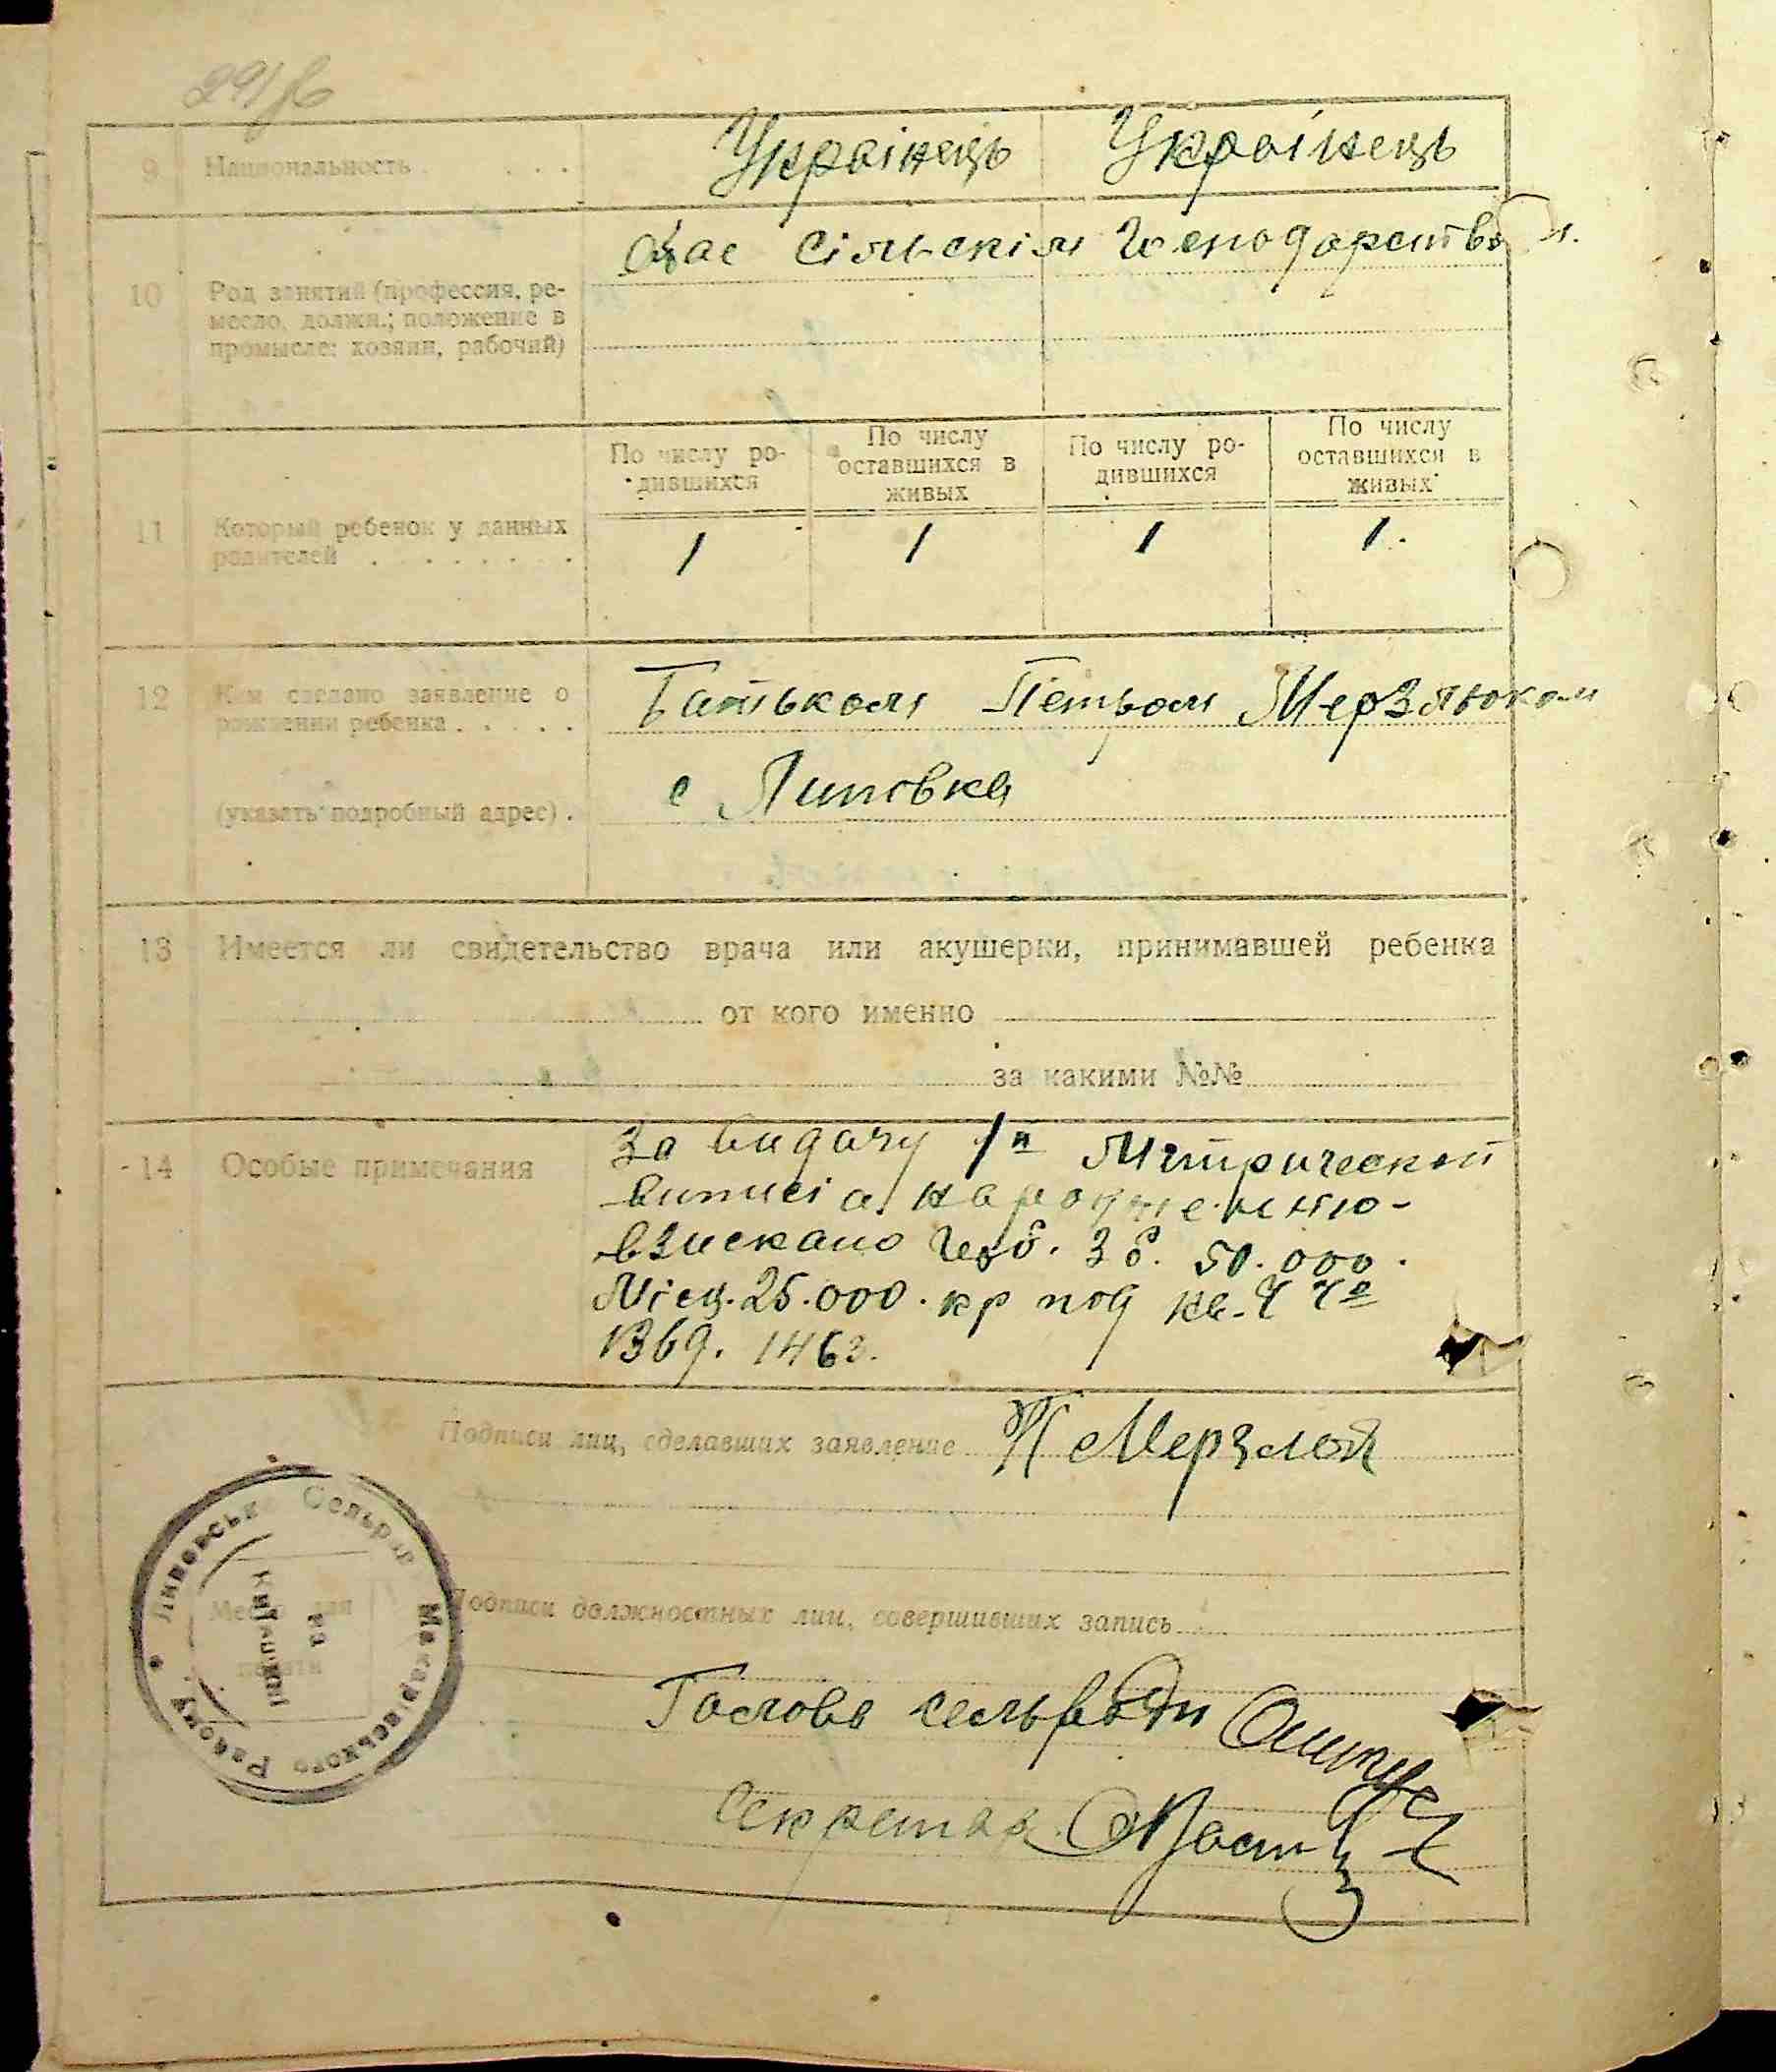 9 Национальность . . . . Українець Українець
Сільскім Господарством.
10 Род занятий (профессия, ре-
месло, должн.; положение в
промысле: хозяин, рабочий)
По числу ро-
дившихся
По числу
оставшихся в
живых
По числу ро-
дившихся
По числу
оставшихся в
живых
11 Который ребенок у данных
родителей . . . . . . .
1 1 1 1.
12 Кем сделано заявление о
рождении ребенка . . . . .
Батьком Петром Мерзлюком
с Липовка
(указать подробный адрес) .
13 Имеется ли свидетельство врача или акушерки, принимавшей ребенка
от кого именно
за какими №№
14 Особые примечания
За видачу 1й Митрической
взискано Герб. Зб. 50.000.
Місц. 25.000. кр под кв.
1463.
Подписи лиц, сделавших заявление П Мерзлюк
Липовська Сельрада Макарівського Району
Київщині
Место для
печати
Подписи должностных лиц, совершивших запись
Голова сельради
Секретар